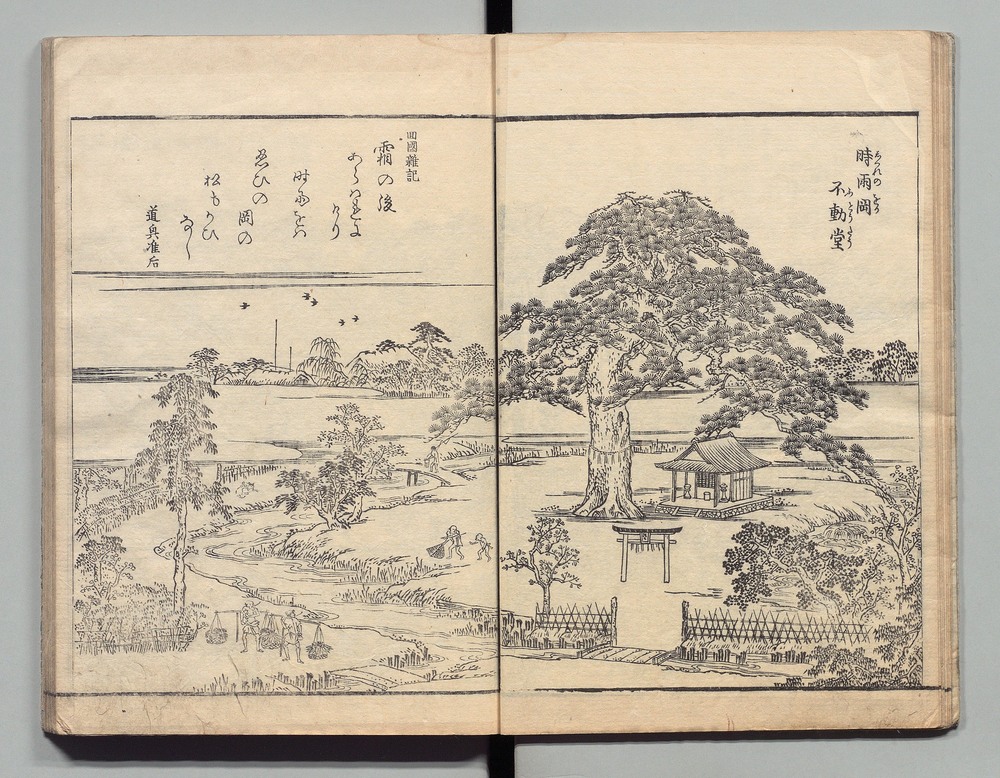 時雨岡
しくれのをか
不動堂
ふどうだう
回國雜記
霜の後
あらはれに
けり
時雨をは
忍ひの
岡の
松もかひ
なし
道興准后